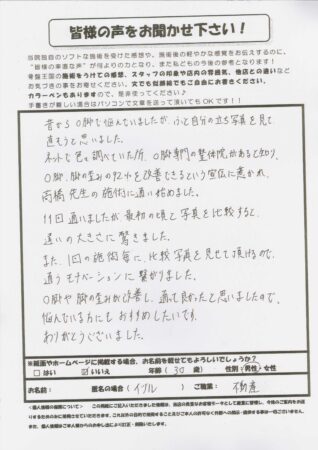 皆様の声をお聞かせ下さい！
当院独自のソフトな施術を受けた感想や、施術後の軽やかな感覚をお伝えするのに、
"皆様の率直な声"が何よりの力となり、また私どもの今後の参考となります！
骨盤王国の施術をうけての感想、スタッフの印象や店内の雰囲気、他店との違いなど
お気づきの事をお寄せください。
カラーペンもありますので、是非使って下さい♪
手書きが難しい場合はパソコンで文章を送って頂いてもOKです！！
昔からO脚で悩んでいましたが、ふと自分の立ち写真を見て
直そうと思いました。
ネットで色々調べていた所、O脚専門の整体院があると知り、
O脚、脚の歪みの92%を改善できるという宣伝に惹かれ、
高橋先生の施術に通い始めました。
11回通いましたが最初の頃と写真を比較すると、
違いの大きさに驚きました。
また、1回の施術毎に、比較写真を見せて頂けるので、
通うモチベーションに繋がりました。
O脚や脚の歪みが改善し、通って良かったと思いましたので、
悩んでいる方にもおすすめしたいです。
ありがとうございました。
※紙面やホームページに掲載する場合、お名前を載せてもよろしいでしょうか？
□はい ☑いいえ 年齢（30 歳） 性別：男性・女性
お名前： 匿名の場合（イワル） ご職業： 不動産